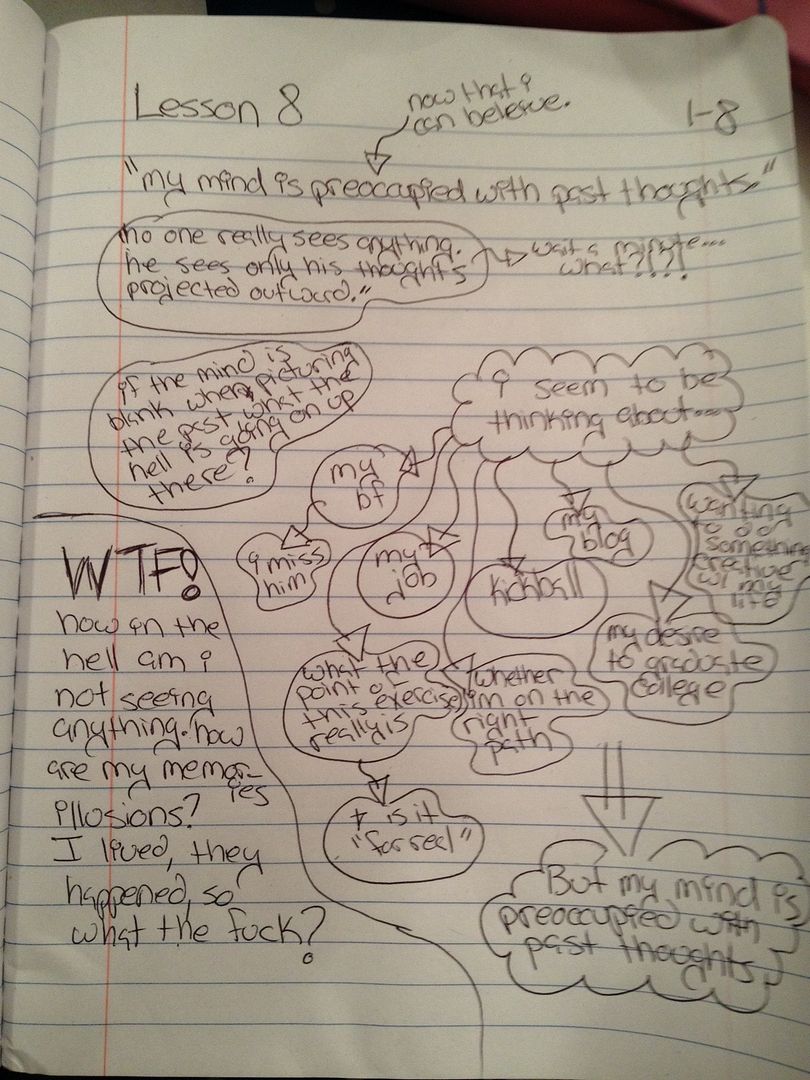 Lesson 8
now that i
can beleive.
1-8
"my mind is preoccupied with past thoughts."
no one really sees anything.
he sees only his thoughts
projected outward."
wait a minute...
what?!?!
if the mind is
blank when picturing
the past what the
hell is going on up
there?
i seem to be
thinking about....
my
bf
i miss
him
my
job
kickball
my
blog
wanting
to do
something
creative
w/ my
life
my desire
to graduate
college
what the
point of
this exercise
really is
whether
i'm on the
right
path
+ is it
"for real"
WTF!
how in the
hell am i
not seeing
anything. how
are my memor-
ies
illusions?
I lived, they
happened, so
what the fuck?
But my mind is
preoccupied with
past thoughts.